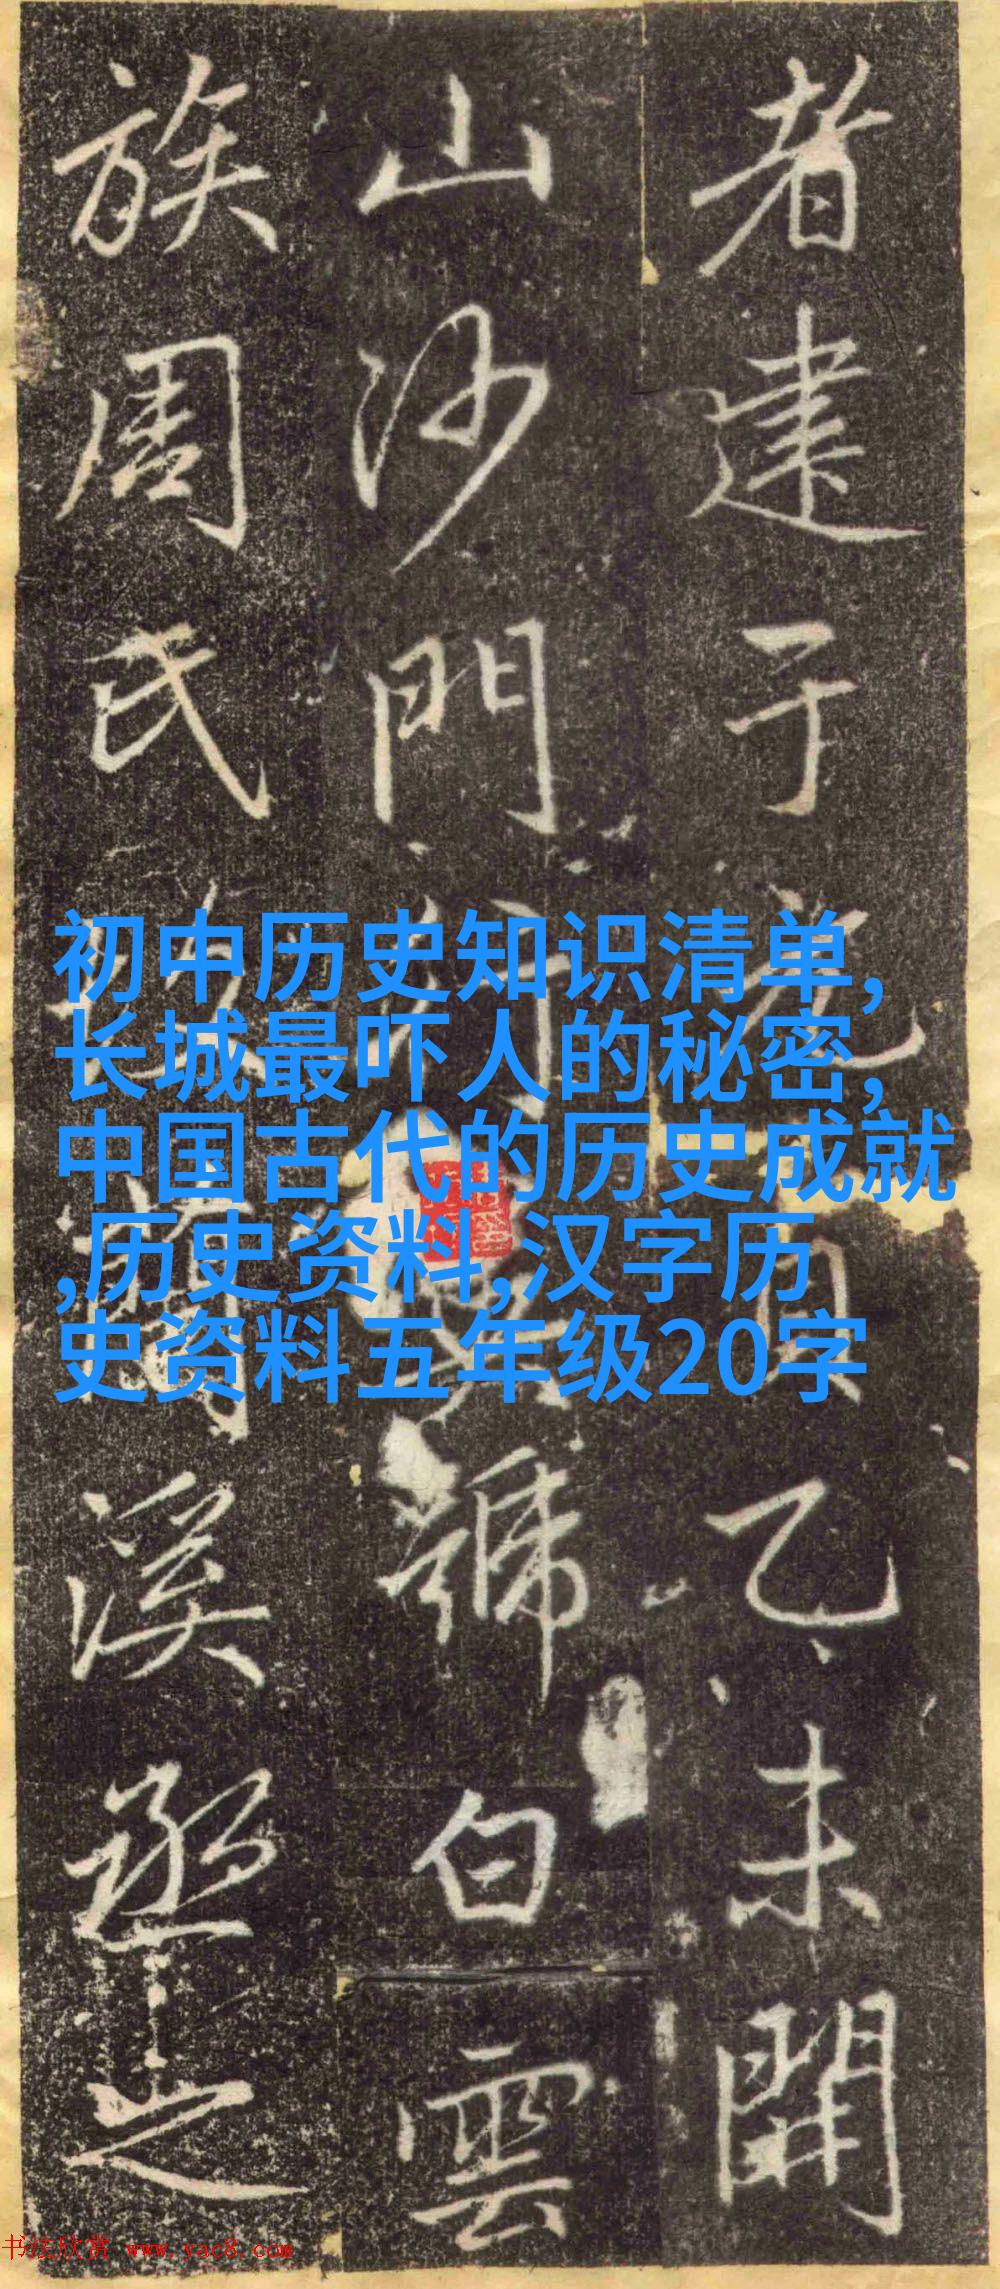 者建于元貞乙未開
山沙門 號白雲
族周氏 蘭溪丞之
初中历史知识清单,
长城最吓人的秘密,
中国古代的历史成就
,历史资料,汉字历
史资料五年级20字
书法欣赏 www.yac8.com